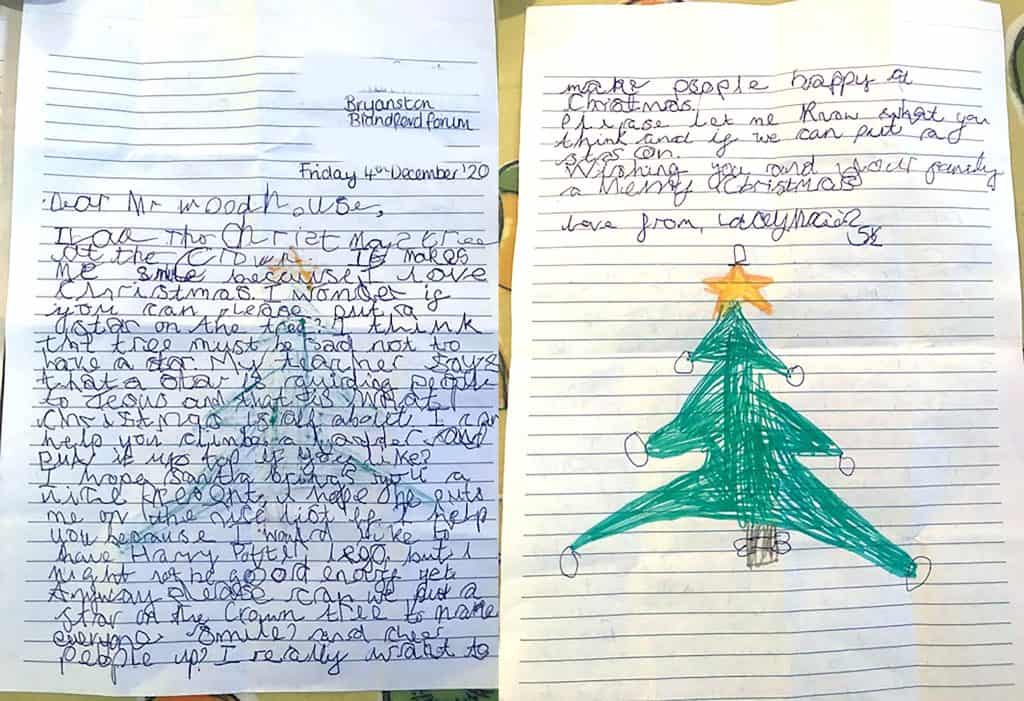 Bryanston
Blandford forum
Friday 4th December '20
Dear Mr Woodhouse,
the Christmas tree
at the Crown. It makes
me smile because I love
Christmas. I wonder if
you can please put a
star on the tree? I think
the tree must be sad not to
have a star. My teacher says
that a star is guiding people
to Jesus and that is what
Christmas is all about. I can
help you climb a ladder and
put it up top if you like?
I hope Santa brings you a
nice present. I hope he puts
me on the nice list if I help
you because I would like to
have Harry Potter Lego but I
might not be good enough yet.
Anyway please can we put a
star on the Crown tree to make
everyone smile? and cheer
people up? I really want to
make people happy at
Christmas.
Please let me know what you
think and if we can put a
star on.
Wishing you and your family
a Merry Christmas
Love from,